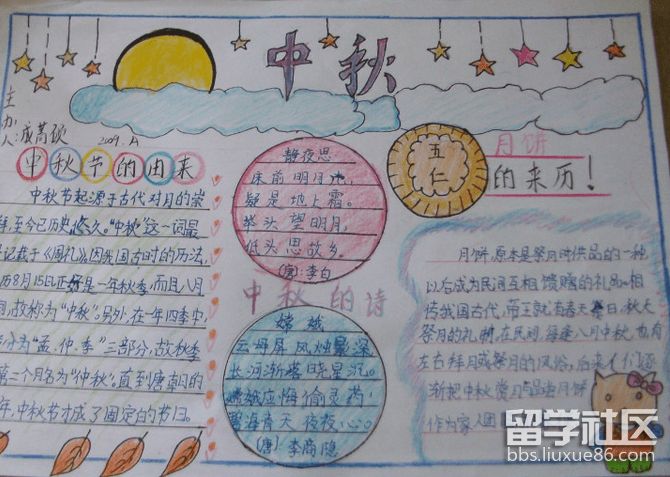 中秋
主办人:成蒿
2009.
中秋节的由来
中秋节起源于古代对月的崇
拜,至今已历史悠久。"中秋"这一词最
记载于《周礼》,因我国古时的历法,
历8月15日正是一年秋季,而且八月
间,故称为"中秋"。另外,在一年四季中,
分为"孟、仲、季"三部分,故秋季
第三个月名为"仲秋",直到唐朝的
年,中秋节才成了固定的节日。
静夜思
床前明月光,
疑是地上霜。
举头望明月,
低头思故乡。
(唐):李白
中秋的诗
嫦娥
云母屏风烛影深,
长河渐落晓星沉。
嫦娥应悔偷灵药,
碧海青天夜夜心。
(唐):李商隐
五仁
月饼
的来历!
月饼,原本是祭月时供品的一种
以后成为民间互相馈赠的礼品。相
传我国古代,帝王就有春天祭日,秋天
祭月的礼制,在民间,每逢八月中秋,也有
左右拜月或祭月的风俗,后来人们逐
渐把中秋赏月与品尝月饼
作为家人团
留学社区
bbs.liuxue86.com